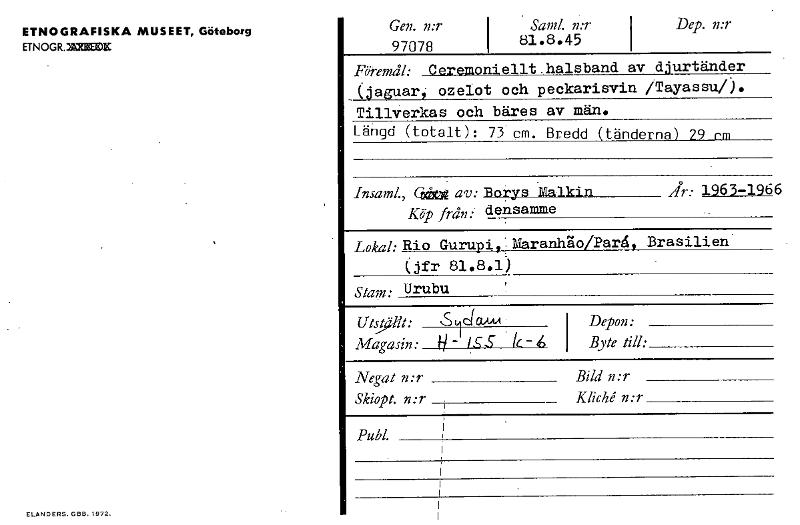 ETNOGRAFISKA MUSEET, Göteborg
ETNOGR.
Gen. n:r Saml. n:r Dep. n:r
97078 81.8.45
Föremål: Ceremoniellt halsband av djurtänder
(jaguar, ozelot och peckarisvin /Tayassu/).
Tillverkas och bäres av män.
Längd (totalt): 73 cm. Bredd (tänderna) 29 cm
Insaml., Gåva av: Borys Malkin År: 1963-1966
Köp från: densamme
Lokal: Rio Gurupi, Maranhão/Pará, Brasilien
(jfr 81.8.1)
Stam: Urubu
Utställt: Sydam Depon:
Magasin: H-155 k-6 Byte till:
Negat n:r Bild n:r
Skiopt. n:r Kliché n:r
Publ.
ELANDERS. GBB. 1972.